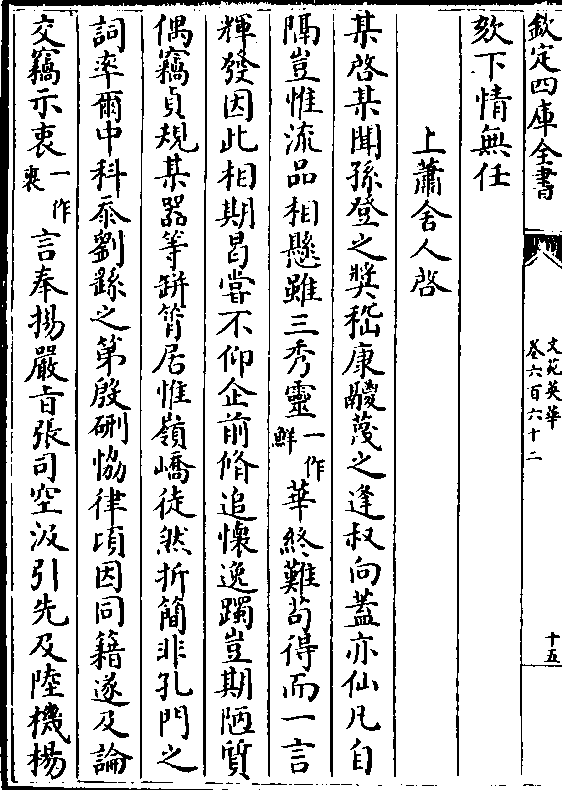 欽定四庫全書
文苑英華
卷六百六十二
十五
欬下情無任
上蕭舍人啓
某啓某聞孫登之奬嵇康鬷蔑之逢叔向蓋亦仙凡自
隔豈惟流品相懸雖三秀靈一作鮮華終難茍得而一言
輝發因此相期曷嘗不仰企前脩追懷逸躅豈期陋質
偶竊貞規某器等缾筲居惟嶺嶠徒然折簡非孔門之
詞率爾中科忝劉繇之第殷䤋協律頃因同籍遂及論
交竊示衷一作裏言奉揚嚴旨張司空汲引先及陸機楊